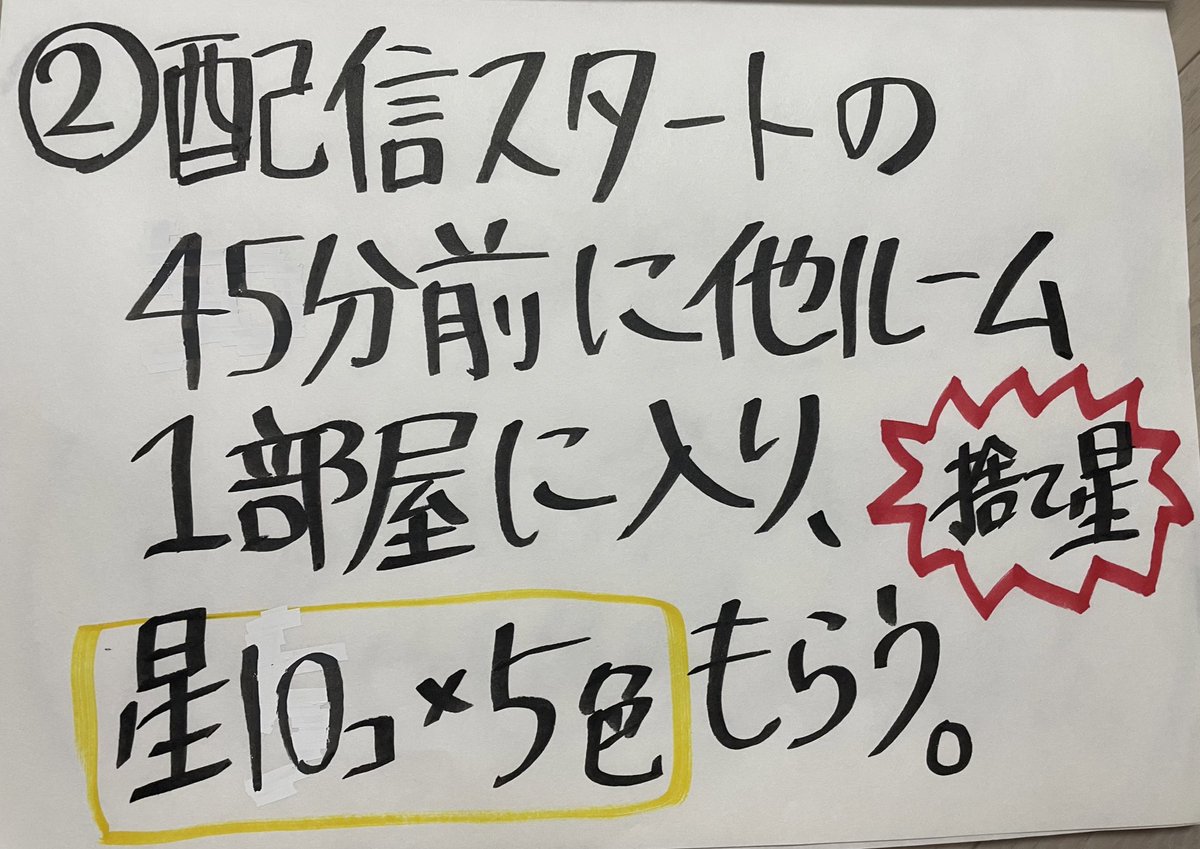 ②配信スタートの
45分前に他ルーム
1部屋に入り、
捨て星
星10コ×5色もらう。